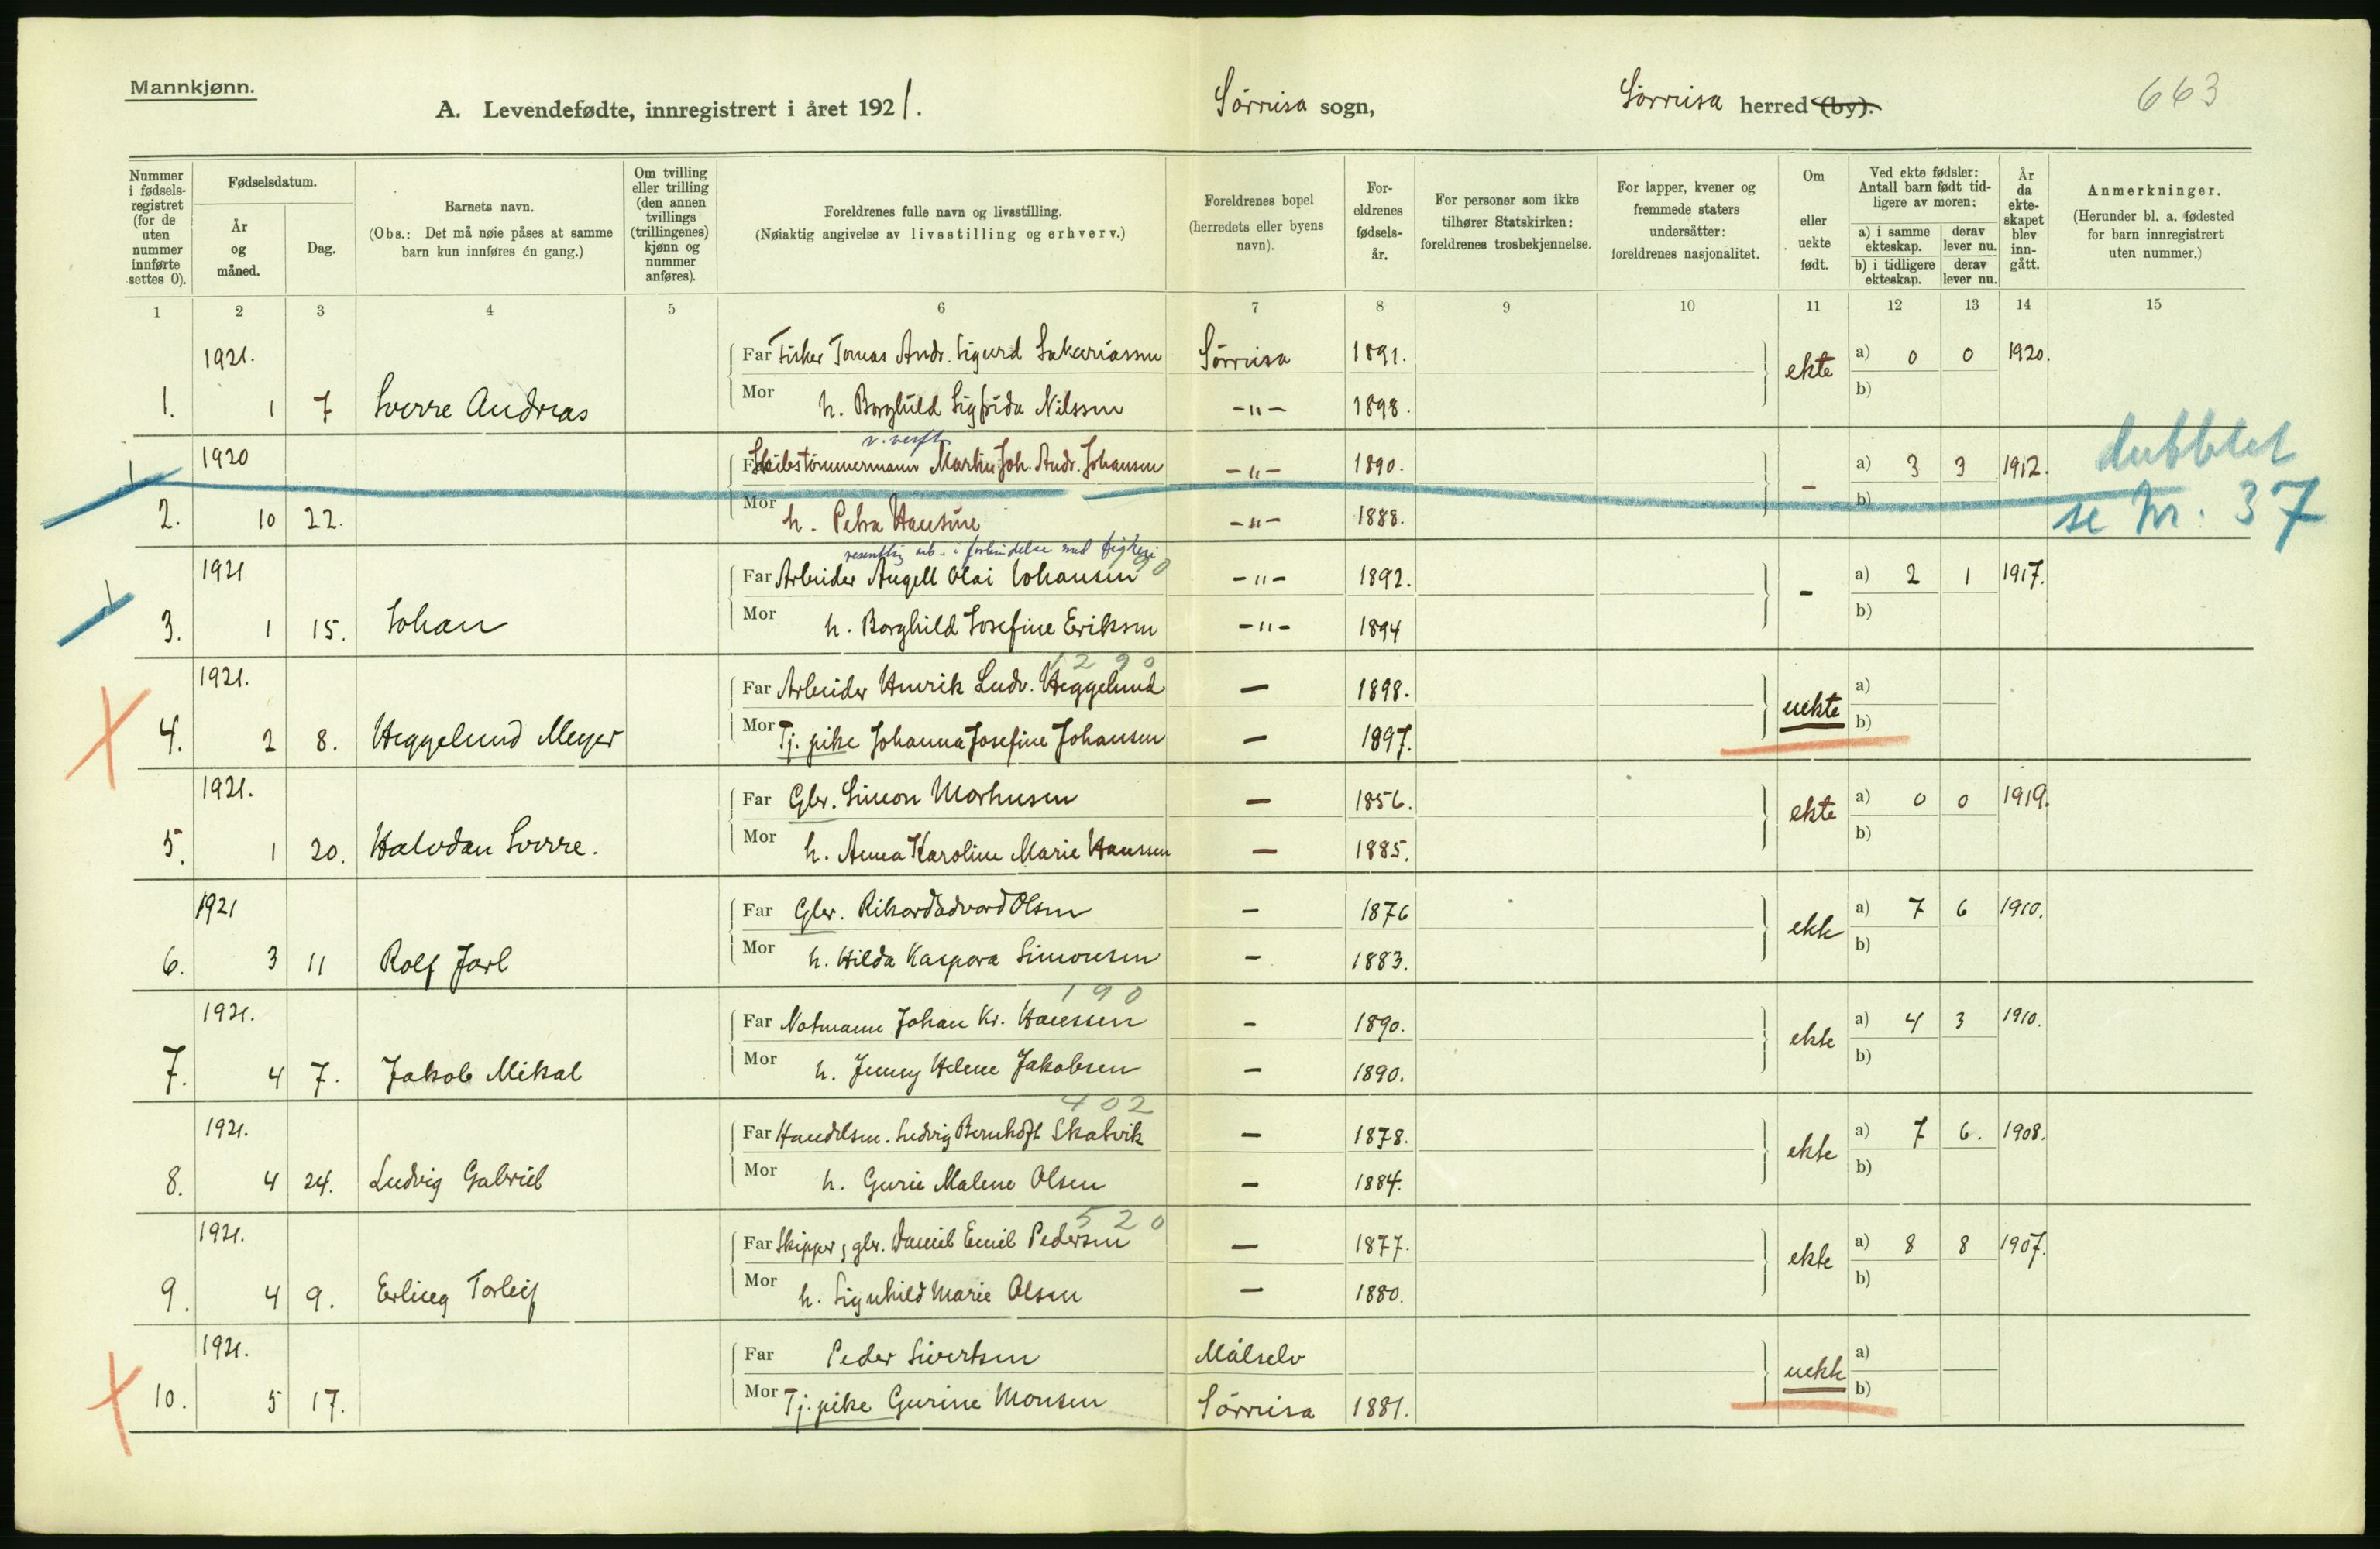 Mannkjønn.
A. Levendefødte, innregistrert i året 1921.
Sørreisa sogn,
Sørreisa herred (by).
663
Nummer i fødselsregistret (for de uten nummer innførte settes 0).
Fødselsdatum.
År og måned.
Dag.
Barnets navn.
(Obs.: Det må nøie påses at samme barn kun innføres én gang.)
Om tvilling eller trilling (den annen tvillings (trillingenes) kjønn og nummer anføres).
Foreldrenes fulle navn og livsstilling.
(Nøiaktig angivelse av livsstilling og erhverv.)
Foreldrenes bopel (herredets eller byens navn).
Foreldrenes fødselsår.
For personer som ikke tilhører Statskirken: foreldrenes trosbekjennelse.
For lapper, kvener og fremmede staters undersåtter: foreldrenes nasjonalitet.
Om eller uekte født.
Ved ekte fødsler: Antall barn født tidligere av moren:
a) i samme ekteskap. derav lever nu.
b) i tidligere ekteskap. derav lever nu.
År da ekteskapet blev inngått.
Anmerkninger.
(Herunder bl. a. fødested for barn innregistrert uten nummer.)
1 2 3 4 5 6 7 8 9 10 11 12 13 14 15
1921. Far Fisker Tomas Andr. Sigurd Sakariassen Sørreisa 1891. ekte a) 0 0 1920.
1. 1 7 Sverre Andreas Mor h. Borghild Sigfrida Nilssen -"- 1898. b)
v. verft
1920 Far Skibstømmermann Martin Joh. Andr. Johansen -"- 1890. - a) 3 3 1912. dubblet
2. 10 22. Mor h. Petra Hansine -"- 1888. b) se Nr. 37
vesentlig arb. i forbindelse med fiskeri
90
1921 Far Arbeider Angell Olai Johansen -"- 1892. - a) 2 1 1917.
3. 1 15. Johan Mor h. Borghild Josefine Eriksen -"- 1894 b)
1290
1921. Far Arbeider Henrik Ludv. Heggelund — 1898. uekte a)
4. 2 8. Heggelund Meyer Mor Tj. pike Johanna Josefine Johansen — 1897. b)
1921. Far Gbr. Simeon Markusen — 1856. ekte a) 0 0 1919.
5. 1 20. Halvdan Sverre. Mor h. Anna Karoline Marie Hanssen — 1885. b)
1921 Far Gbr. Rikard Edvard Olsen — 1876 ekte a) 7 6 1910.
6. 3 11 Rolf Jarl Mor h. Hilda Kaspara Simonsen — 1883. b)
190
1921. Far Notmann Johan Kr. Hanssen — 1890. ekte a) 4 3 1910.
7. 4 7. Jakob Mikal Mor h. Jenny Helene Jakobsen — 1890. b)
402
1921. Far Handelsm. Ludvig Bernhoft Skalvik — 1878. ekte a) 7 6. 1908.
8. 4 24. Ludvig Gabriel Mor h. Gurie Malene Olsen — 1884. b)
520
1921. Far Skipper, gbr. Daniel Emil Pedersen — 1877. ekte a) 8 8 1907.
9. 4 9. Erling Torleif Mor h. Signhild Marie Olsen — 1880. b)
1921. Far Peder Sivertsen Målselv uekte a)
10. 5 17. Mor Tj. pike Gurine Monsen Sørreisa 1881. b)